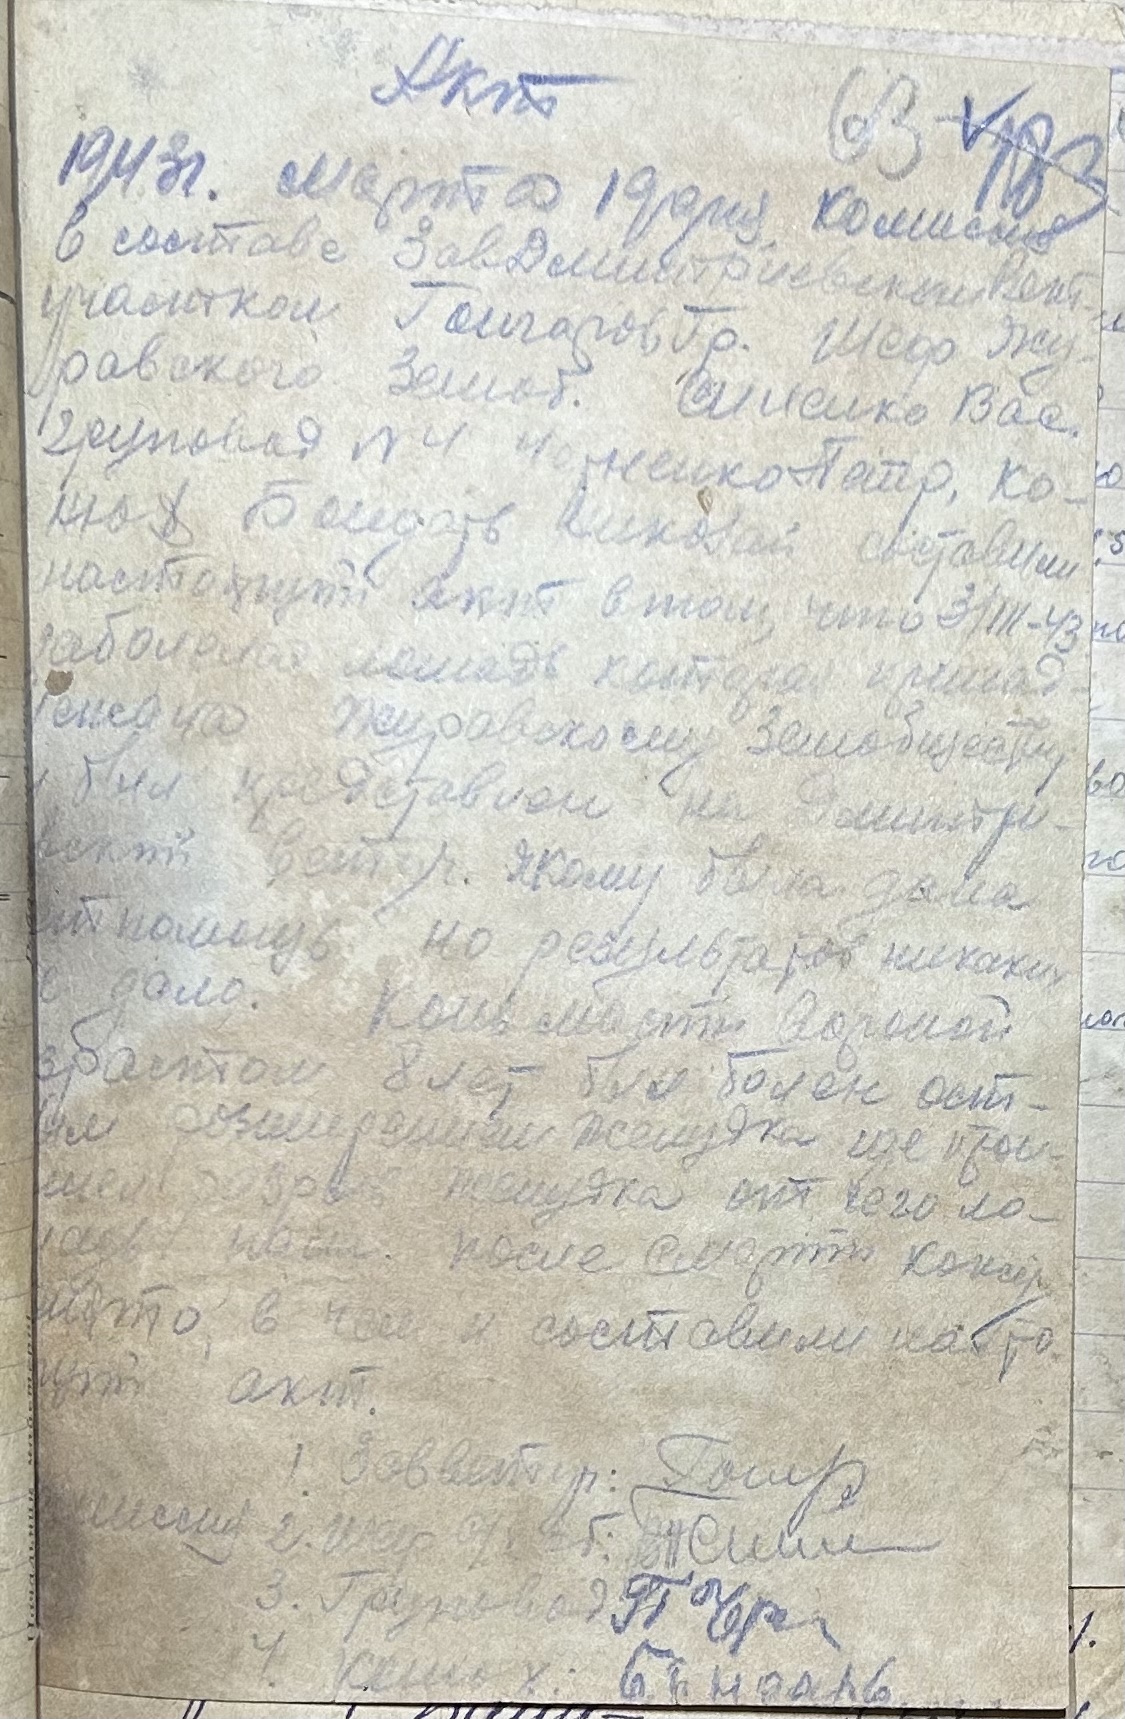 Акт
63 183
1943г. Марта 19 дня, комисия
в составе ЗавДмитриевским Вет.
участком Гончаров Гр. Шеф Жу-
равского Земоб. Симсико Вас.
груповод №4 Петр, Ко-
нюх Бондарь составили
настоящий акт в том, что 3/III-43
заболела лошадь которая принад-
лежала Журавскому Земобществу
и был представлен на Дмитри-
вский Ветуч. якому была дана
ветпомощь но результатов никаких
не дало. Конь масти Вороной
взрастом 8 лет был болен ост-
рым розширением желудка где прои-
шел розрыв желудка от чего ло-
шадь пала. после смерти
снято, в чем и составили насто-
ящий акт.
1. Завветуч: Гонч
комиссия 2. Шеф
3. Груповод П Чор
4. Конюх: Бондарь